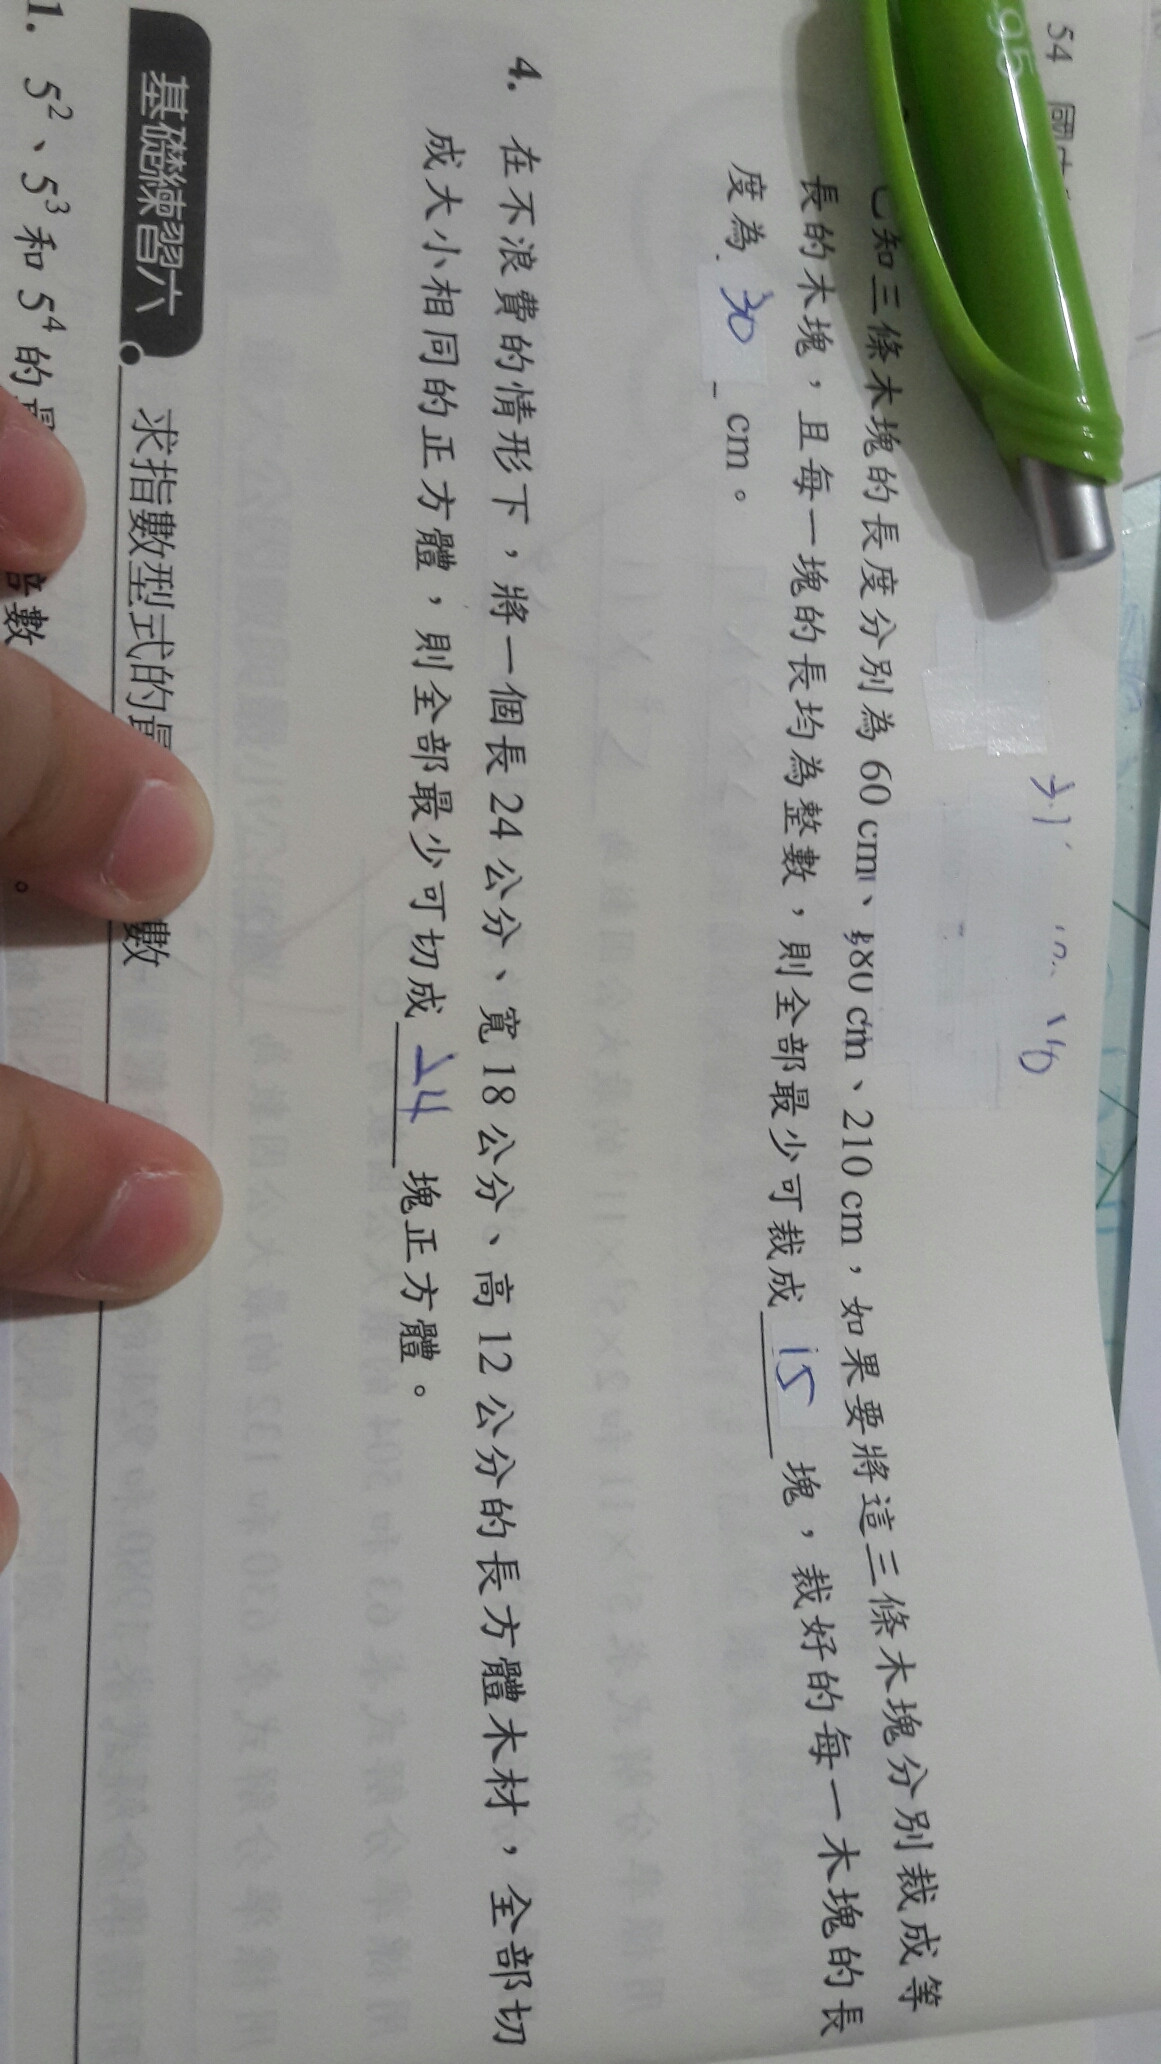 54
95
知三條木塊的長度分別為 60 cm、180 cm、210 cm，如果要將這三條木塊分別裁成等
長的木塊，且每一塊的長均為整數，則全部最少可裁成 15 塊，裁好的每一木塊的長
度為 30 cm。
4. 在不浪費的情形下，將一個長 24 公分、寬 18 公分、高 12 公分的長方體木材，全部切
成大小相同的正方體，則全部最少可切成 24 塊正方體。
基礎練習六 求指數型式的最 數
1. 5²、5³ 和 5⁴ 的最 數 。